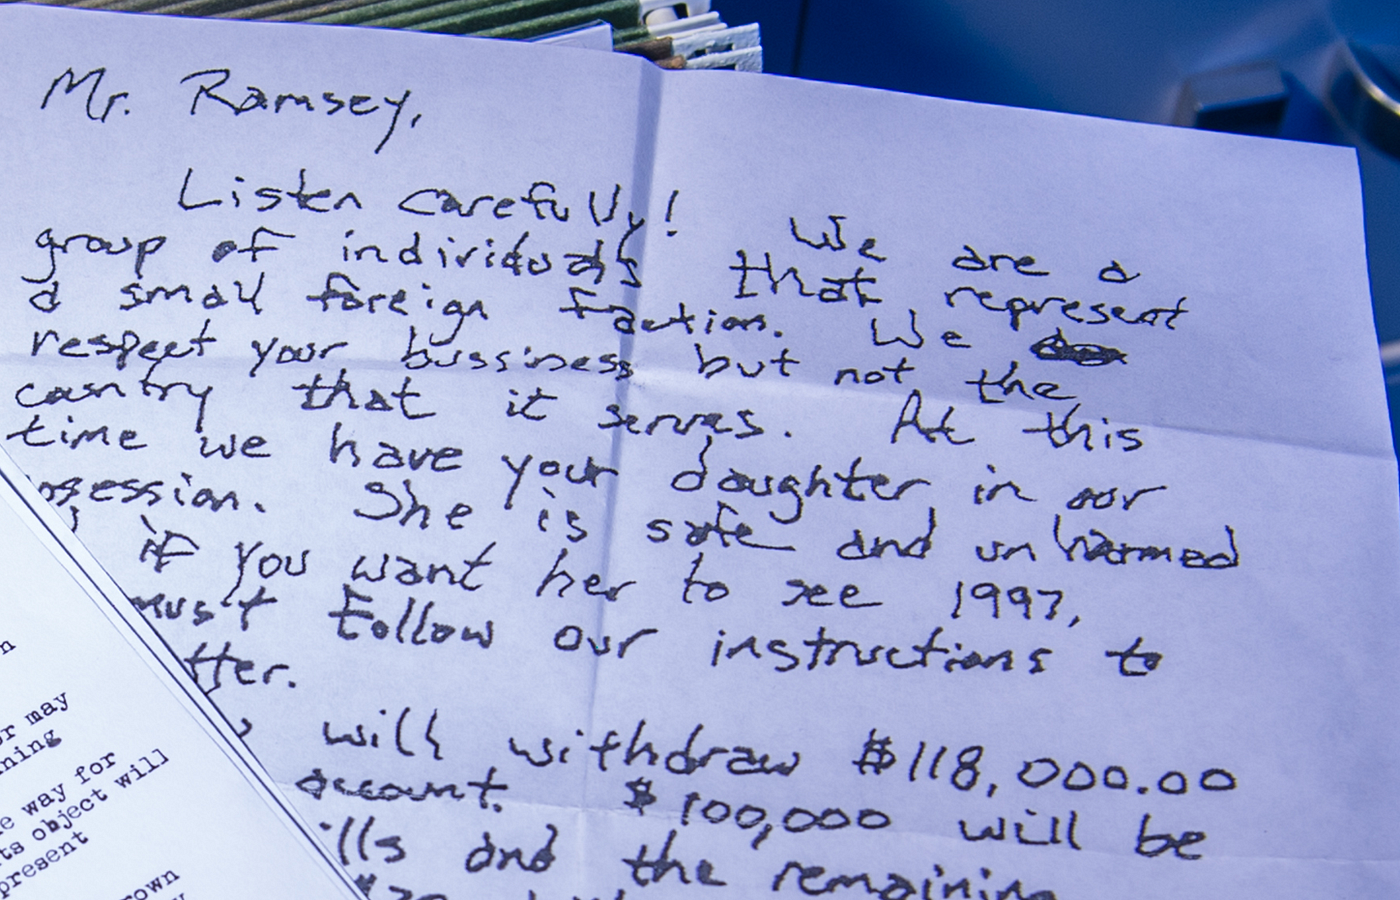 Mr. Ramsey,
Listen carefully! We are a
group of individuals that represent
a small foreign faction. We
respect your bussiness but not the
country that it serves. At this
time we have your daughter in our
session. She is safe and unharmed
if you want her to see 1997,
must follow our instructions to
tter.
will withdraw $118,000.00
account. $100,000 will be
ills and the remaining
n
or may
ning
e way for
ts object will
present
rown